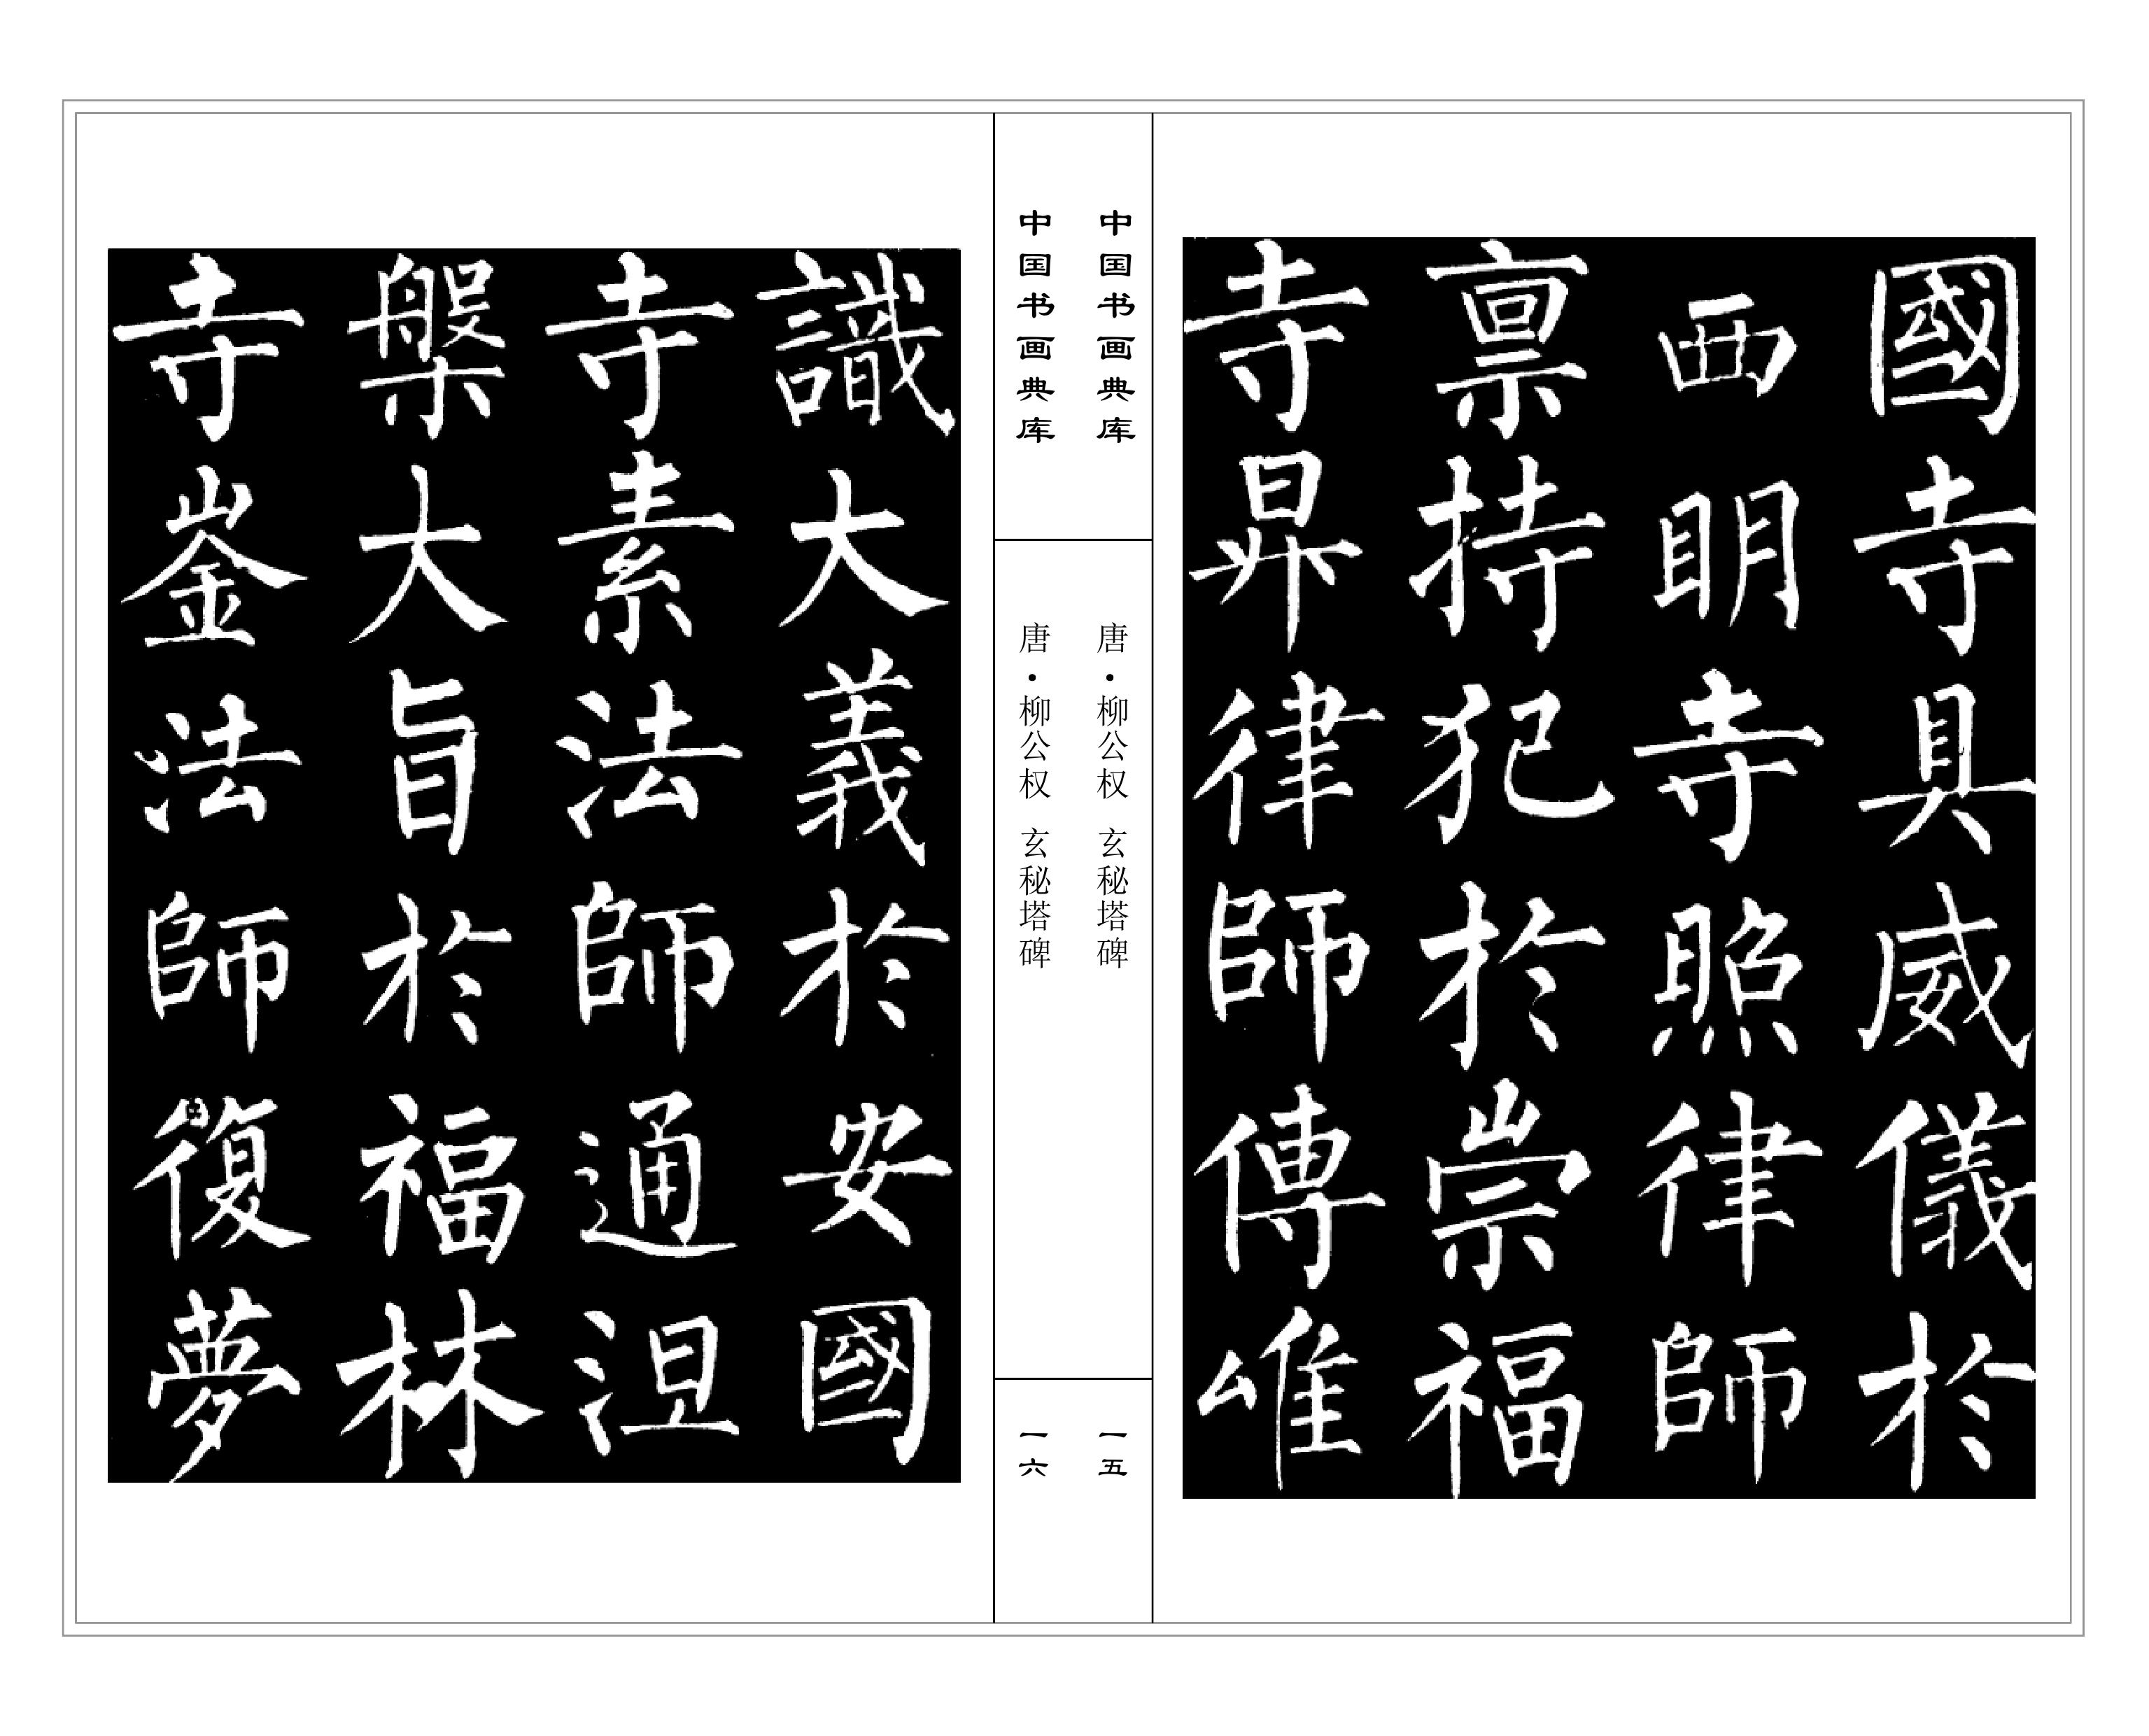 國寺具威儀於
西明寺照律師
禀持犯於崇福
寺昇律師傳唯
中国书画典库
唐·柳公权 玄秘塔碑
一五
中国书画典库
唐·柳公权 玄秘塔碑
一六
識大義於安國
寺素法師通涅
槃大旨於福林
寺崟法師復夢